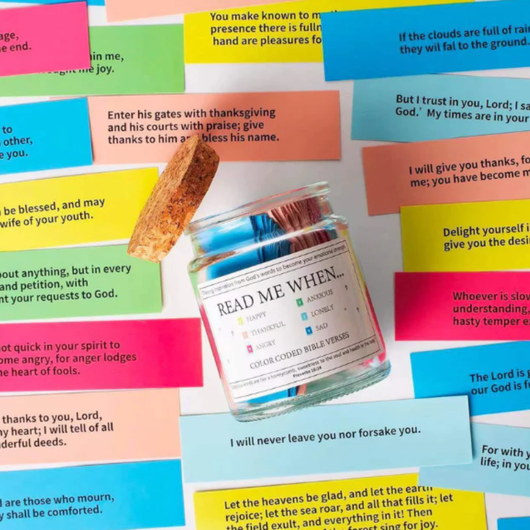 age,
e end.
in me,
ought me joy.
You make known to m
presence there is fulln
hand are pleasures fo
If the clouds are full of rai
they wil fal to the ground.
to
other,
e you.
Enter his gates with thanksgiving
and his courts with praise; give
thanks to him and bless his name.
But I trust in you, Lord; I sa
God.' My times are in your
I will give you thanks, fo
me; you have become m
be blessed, and may
wife of your youth.
Delight yourself i
give you the desi
bout anything, but in every
and petition, with
nt your requests to God.
Whoever is slow
understanding,
hasty temper e
ot quick in your spirit to
ome angry, for anger lodges
he heart of fools.
Taking inspiration from God's words to become your emotional strength
READ ME WHEN...
HAPPY
ANXIOUS
THANKFUL
LONELY
ANGRY
SAD
COLOR CODED BIBLE VERSES
Proverbs 16:24
The Lord is g
our God is fu
thanks to you, Lord,
ny heart; I will tell of all
derful deeds.
I will never leave you nor forsake you.
For with y
life; in you
d are those who mourn,
y shall be comforted.
Let the heavens be glad, and let the earth
rejoice; let the sea roar, and all that fills it; let
the field exult, and everything in it! Then
the forest sing for joy.